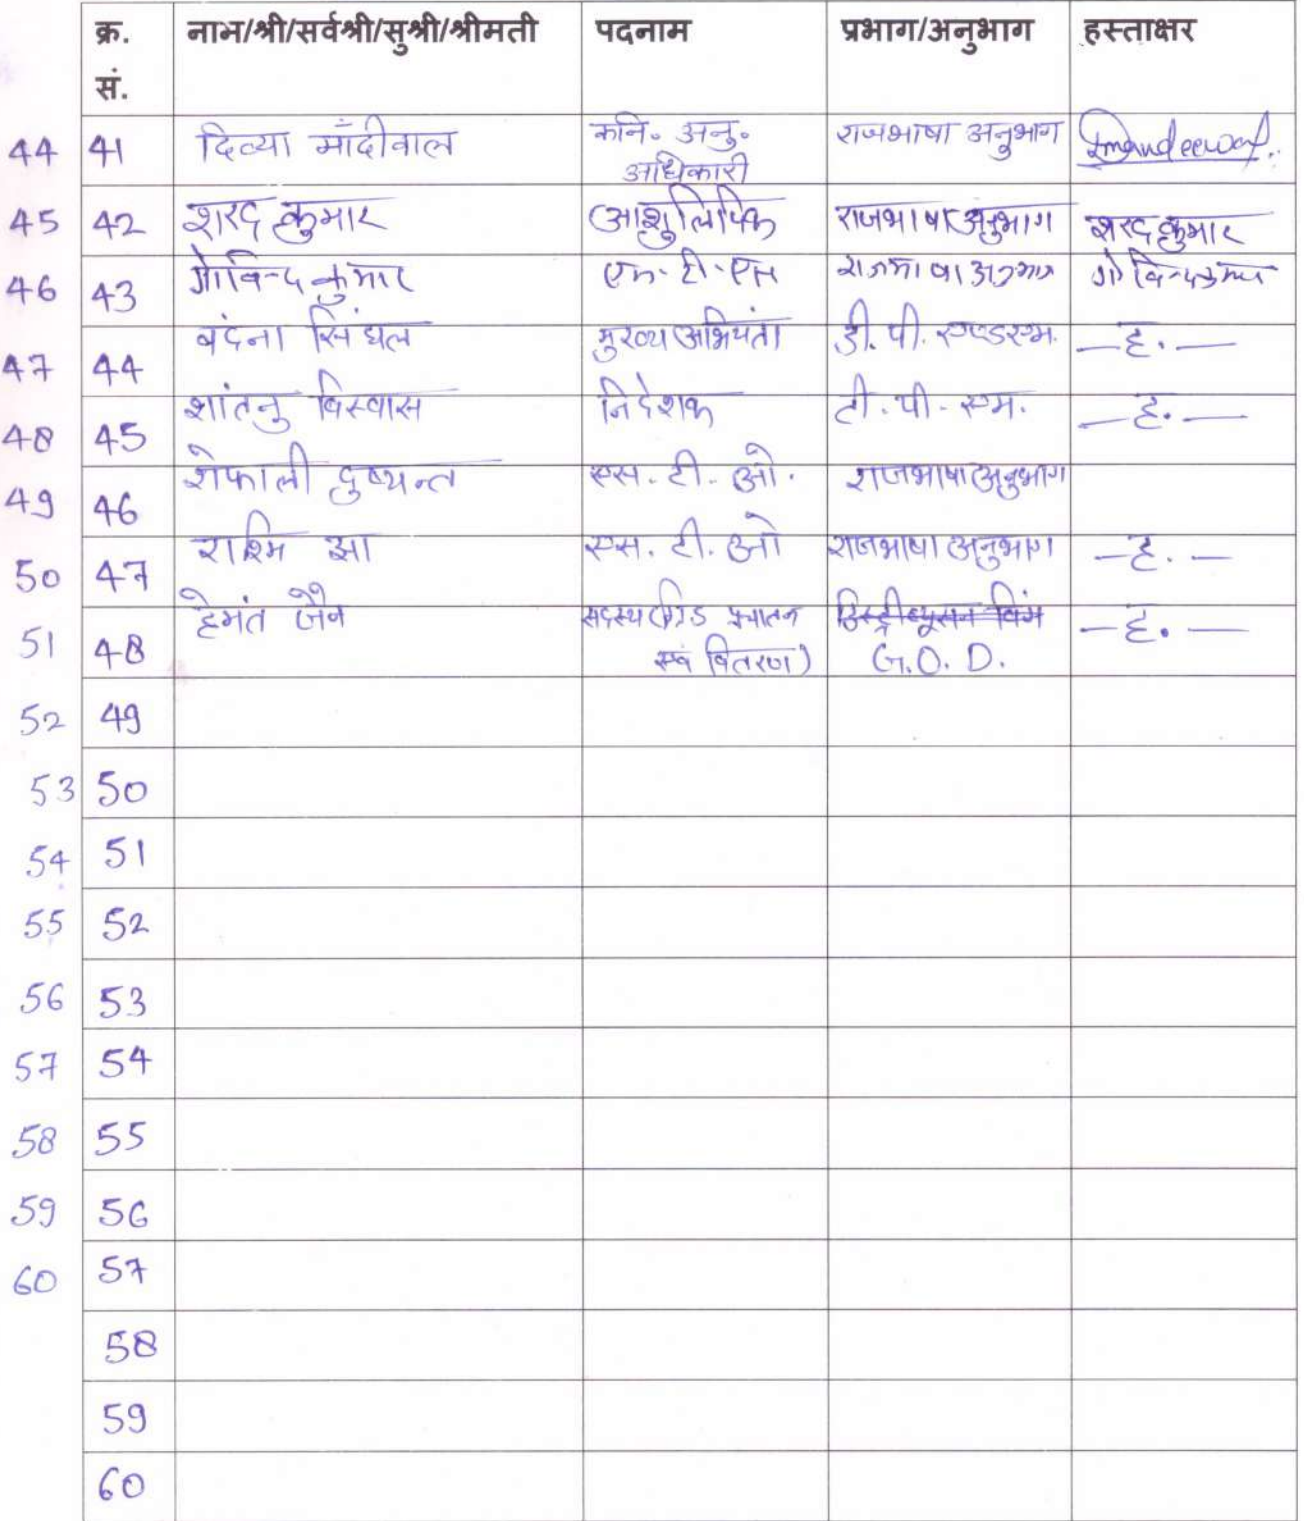 क्र. सं. नाम/श्री/सर्वश्री/सुश्री/श्रीमती पदनाम प्रभाग/अनुभाग हस्ताक्षर
44 41 दिव्या माँदीवाल कनि. अनु. अधिकारी राजभाषा अनुभाग
45 42 शरद कुमार आशुलिपिक राजभाषा अनुभाग शरद कुमार
46 43 गोविन्द कुमार एम.टी.एस राजभाषा अनुभाग गोविन्द कुमार
47 44 बंदना सिंघल मुख्य अभियंता डी.पी. एण्ड एम. —ह.—
48 45 शांतनु विस्वास निदेशक टी.पी.एम. —ह.—
49 46 शेफाली दुष्यन्त एस.टी.ओ. राजभाषा अनुभाग
50 47 राश्मि झा एस.टी.ओ राजभाषा अनुभाग —ह.—
51 48 हेमंत जैन सदस्य (ग्रिड प्रचालन एवं वितरण) डिस्ट्रीब्यूसन विंग G.O.D. —ह.—
52 49
53 50
54 51
55 52
56 53
57 54
58 55
59 56
60 57
58
59
60